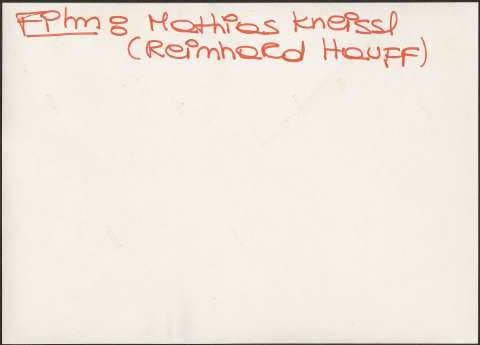 Film: Mathias Kneissl
(Reinhard Hauff)